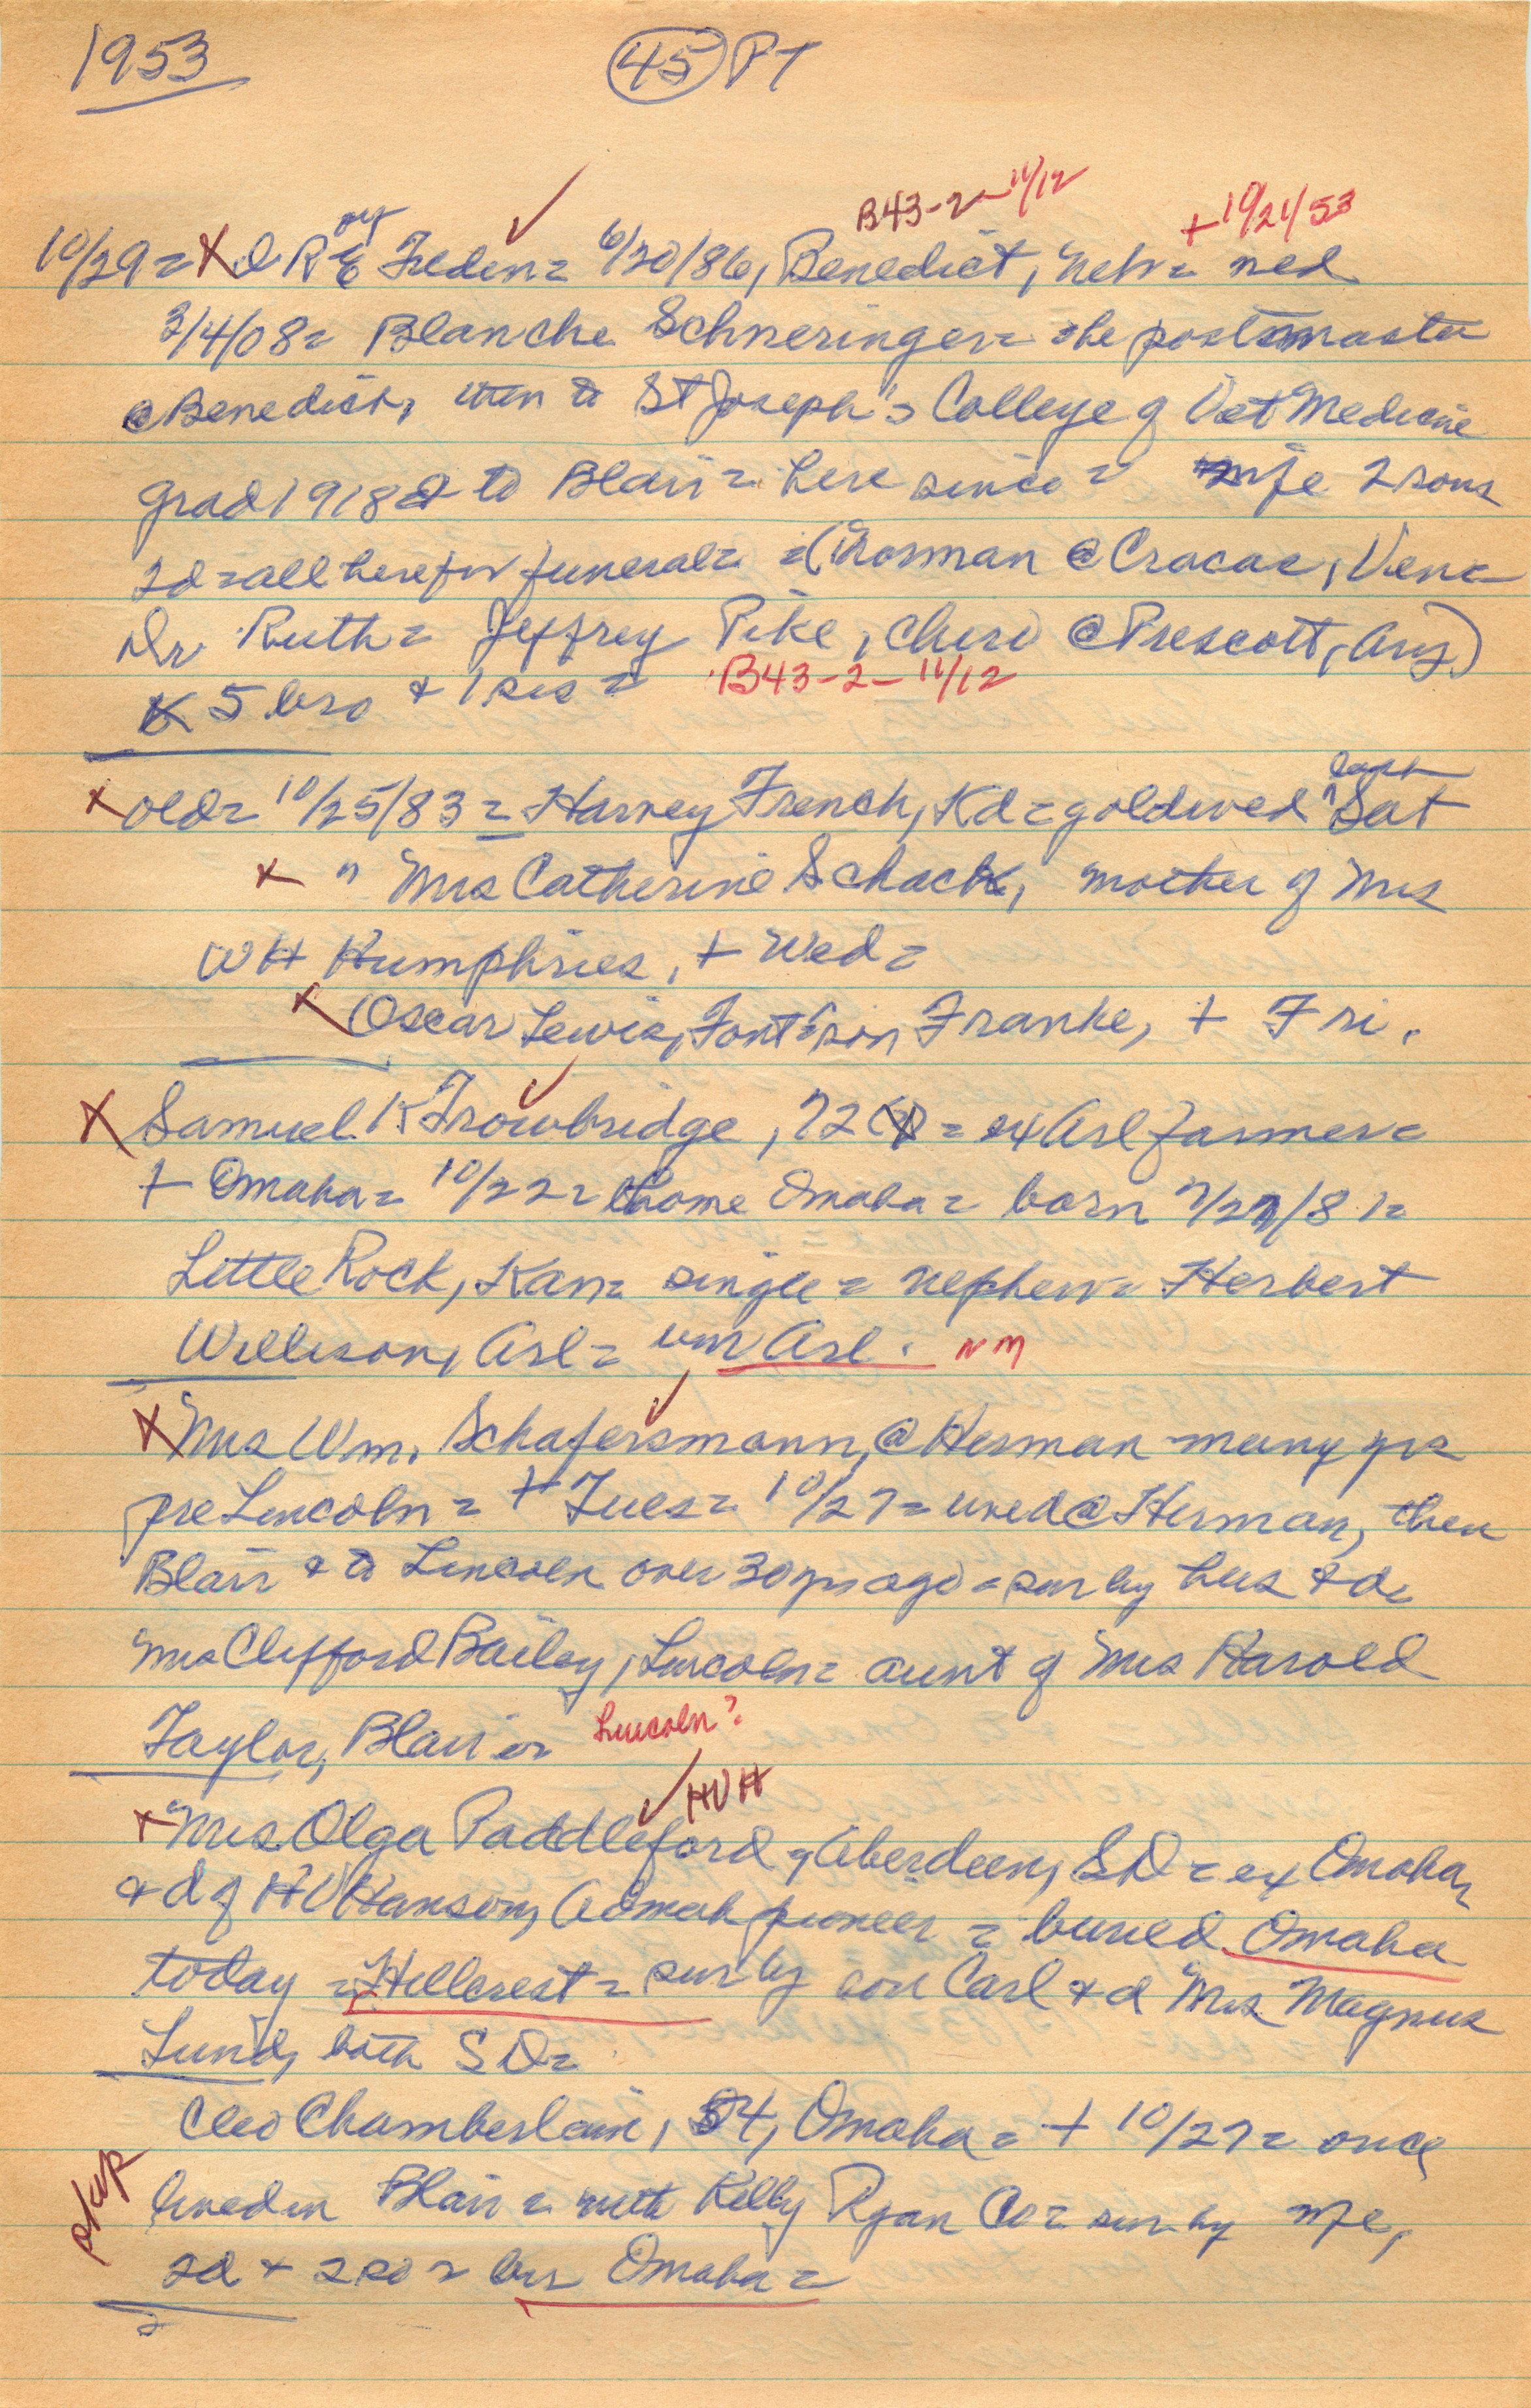 1953
45 PT
B43-2-11/12
+ 10/21/53
oy
10/29= X D R E Freden= 6/20/86, Benedict, Neb= med
3/4/08= Blanche Schneringer= he postmaster
@ Benedict, then to St Joseph's College of Vet Medicine
grad 1918 & to Blair= here since= wife 2 sons
2d= all here for funeral= =(Thorman @ Cracac, Vene
Dr Ruth= Jeffrey Pike, Cheri @ Prescott, Ariz)
5 bro + 1 sis= B43-2-11/12
last
X old= 10/25/83= Harvey French, Kd= goldwed Sat
X " Mrs Catherine Schack, mother of Mrs
WH Humphries, + Wed=
X Oscar Lewis, Font= son Franke, + Fri.
X Samuel K Trowbridge, 72 = ex Arl farmer=
+ Omaha= 10/22= home Omaha= born 7/27/81=
Little Rock, Kan= single= nephew= Herbert
Willison, Arl= bur Arl. NM
X Mrs Wm. Schafersmann, @ Herman many yrs
pre Lincoln= + Tues= 10/27= lived @ Herman, then
Blair & to Lincoln over 30 yrs ago= sur by hus & d=
Mrs Clifford Bailey, Lincoln= aunt of Mrs Harold
Taylor, Blair= Lincoln?
HVH
X Mrs Olga Paddleford of Aberdeen, SD= ex Omaha,
& d of HV Hanson, Admah pioneer= buried Omaha
today= Hillcrest= sur by son Carl & d Mrs Magnus
Lund, both SD=
Cleo Chamberlain, 54, Omaha= + 10/27= once
pkup
lived in Blair= with Kelly Ryan Co= sur by wife,
2d + 2 so= bur Omaha=